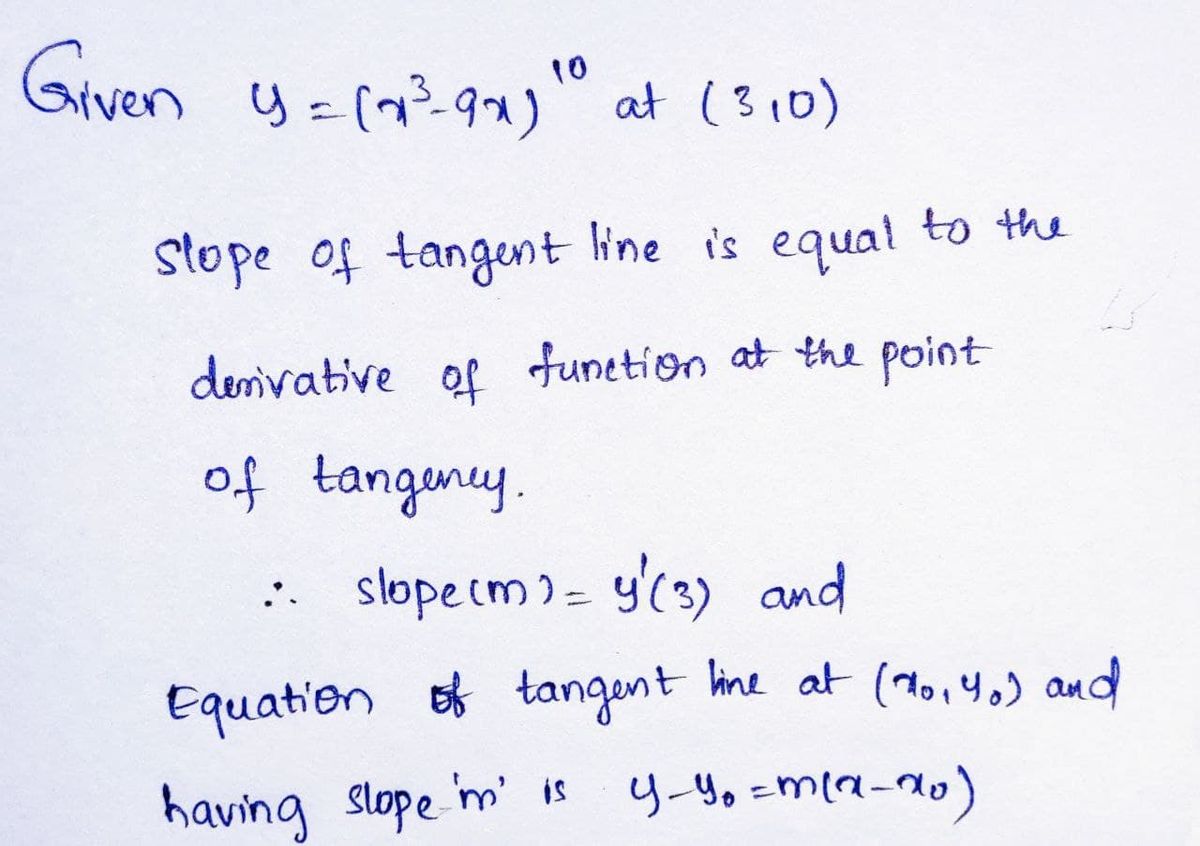 Given y = (x³-9x)¹⁰ at (3,0)
slope of tangent line is equal to the
derivative of function at the point
of tangency.
∴ slope(m) = y'(3) and
Equation of tangent line at (x₀, y₀) and
having slope 'm' is y-y₀ = m(x-x₀)